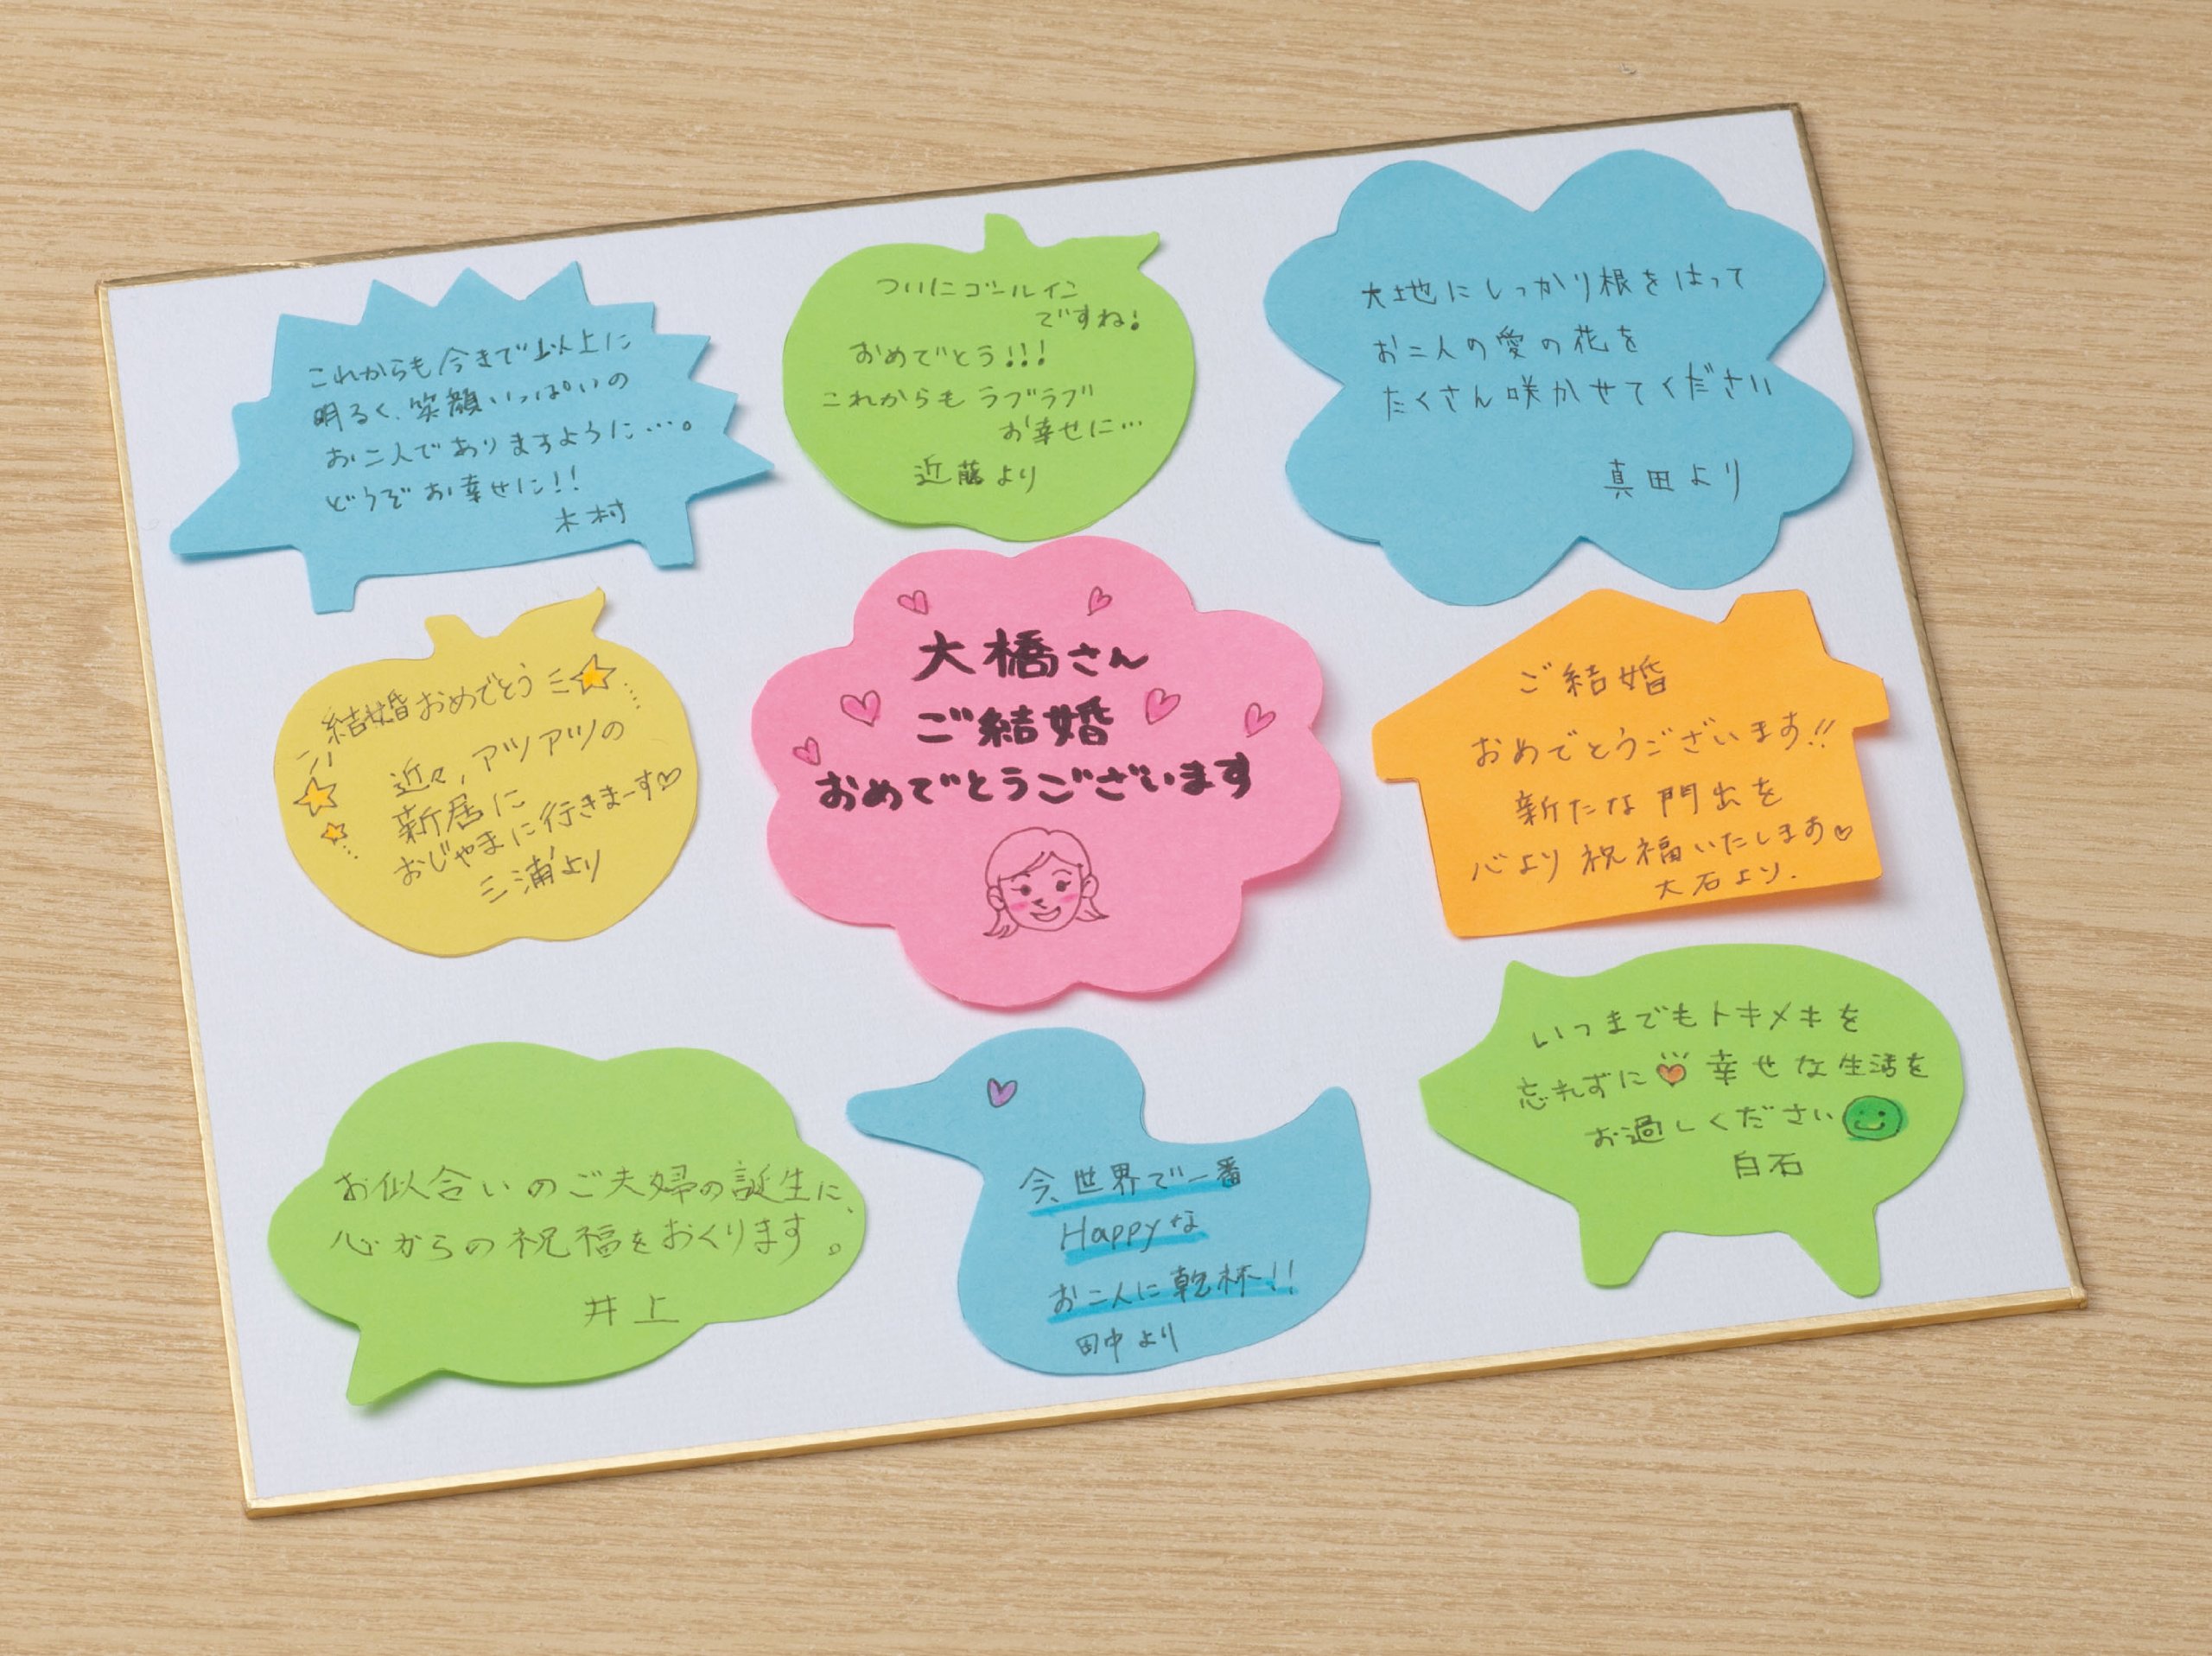 これからも今まで以上に
明るく、笑顔いっぱいの
お二人でありますように…。
どうぞお幸せに!!
木村
ついにゴールイン
ですね!
おめでとう!!!
これからもラブラブ
お幸せに…
近藤より
大地にしっかり根をはって
お二人の愛の花を
たくさん咲かせてください
真田より
結婚おめでとう
近々、アツアツの
新居に
おじゃまに行きまーす♡
三浦より
大橋さん
ご結婚
おめでとうございます
ご結婚
おめでとうございます!!
新たな門出を
心より祝福いたします♡
大石より.
お似合いのご夫婦の誕生に、
心からの祝福をおくります。
井上
今、世界で一番
Happyな
お二人に乾杯!!
田中より
いつまでもトキメキを
忘れずに♡幸せな生活を
お過しください
白石